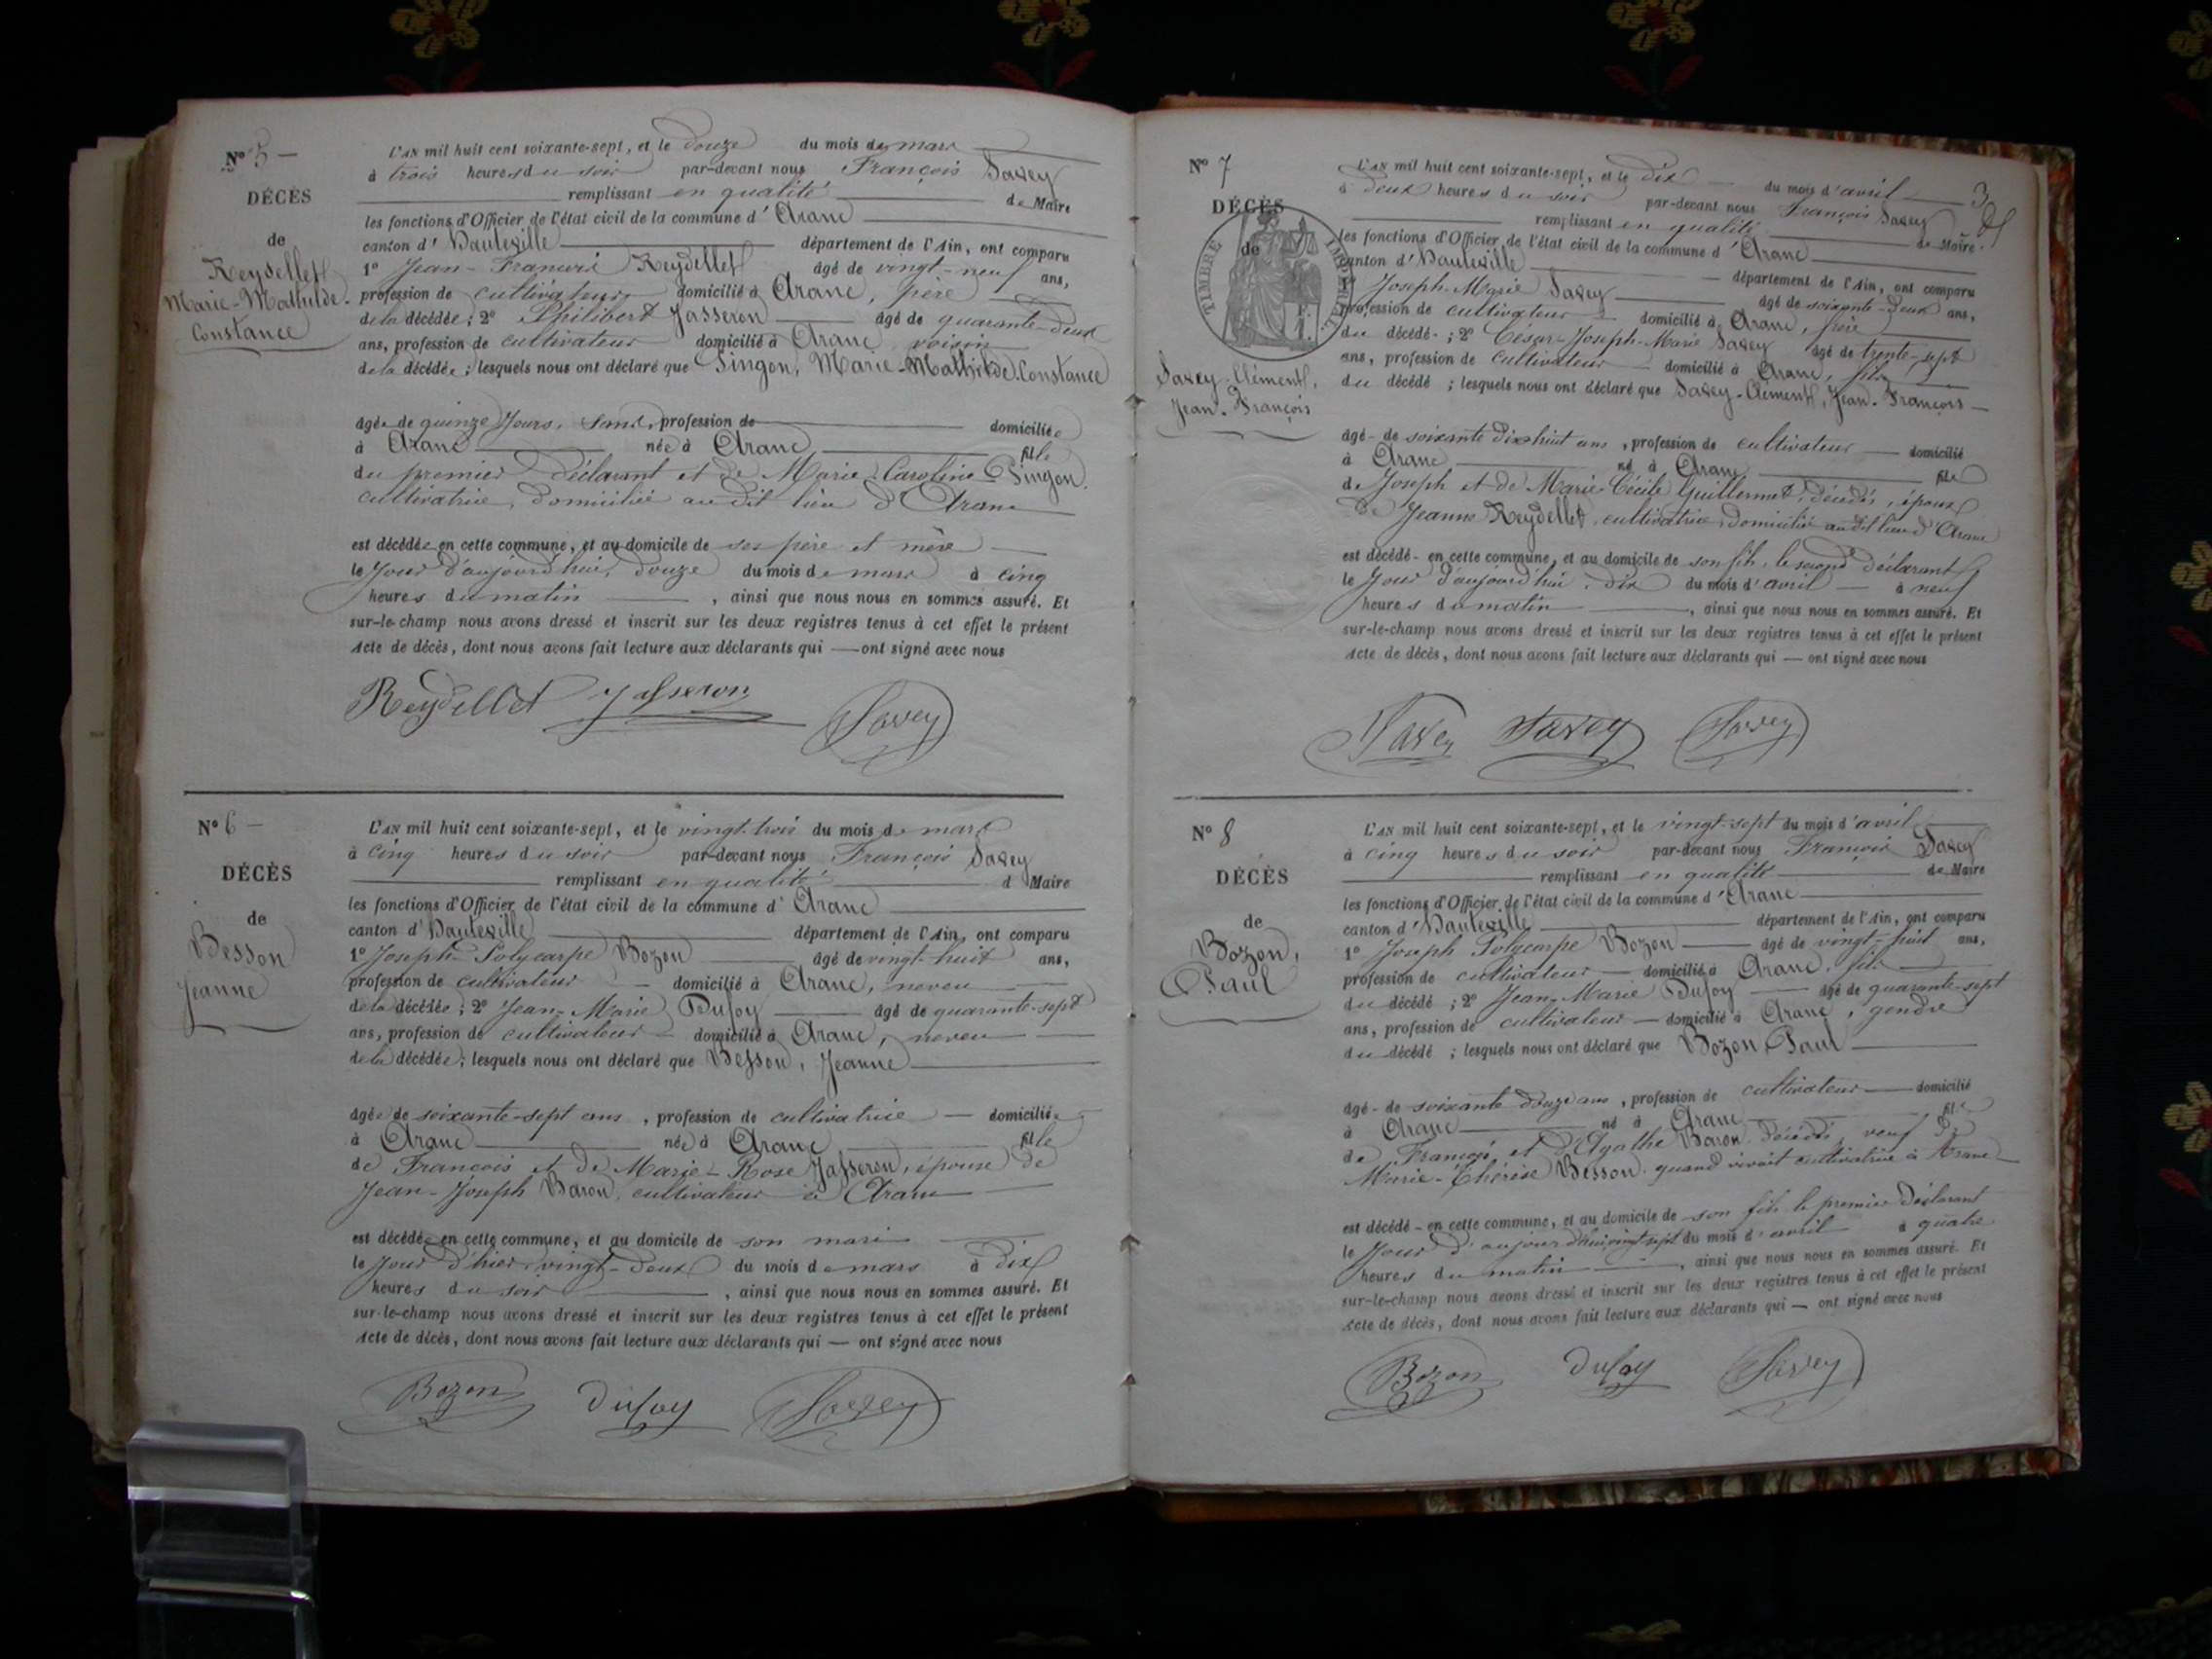 Nº 5 —
DÉCÈS
de
Reydellet
Marie-Mathilde-
Constance
L'AN mil huit cent soixante-sept, et le douze du mois de mars
à trois heures du soir par-devant nous François Savey
remplissant en qualité de Maire
les fonctions d'Officier de l'état civil de la commune d' Aranc
canton d' Hauteville département de l'Ain, ont comparu
1º Jean-François Reydellet âgé de vingt-neuf ans,
profession de cultivateur domicilié à Aranc, père
de la décédée ; 2º Philibert Jasseron âgé de quarante-deux
ans, profession de cultivateur domicilié à Aranc voisin
de la décédée ; lesquels nous ont déclaré que Pingon, Marie-Mathilde-Constance
âgée de quinze Jours, sans profession de domiciliée
à Aranc née à Aranc fille
du premier déclarant et de Marie-Caroline Pingon,
cultivatrice, domiciliée au dit lieu d'Aranc
est décédée en cette commune, et au domicile de ses père et mère
le Jour d'aujourd'hui, douze du mois de mars à cinq
heures du matin , ainsi que nous nous en sommes assuré. Et
sur-le-champ nous avons dressé et inscrit sur les deux registres tenus à cet effet le présent
Acte de décès, dont nous avons fait lecture aux déclarants qui — ont signé avec nous
Reydellet Jasseron Savey
Nº 6 —
DÉCÈS
de
Besson
Jeanne
L'AN mil huit cent soixante-sept, et le vingt-trois du mois de mars
à cinq heures du soir par-devant nous François Savey
remplissant en qualité d Maire
les fonctions d'Officier de l'état civil de la commune d' Aranc
canton d' Hauteville département de l'Ain, ont comparu
1º Joseph-Polycarpe Bozon âgé de vingt-huit ans,
profession de cultivateur domicilié à Aranc, neveu
de la décédée ; 2º Jean-Marie Dufoy âgé de quarante-sept
ans, profession de cultivateur domicilié à Aranc, neveu
de la décédée ; lesquels nous ont déclaré que Besson, Jeanne
âgée de soixante-sept ans , profession de cultivatrice — domiciliée
à Aranc née à Aranc fille
de François et de Marie-Rose Jasseron, épouse de
Jean-Joseph Baron, cultivateur à Aranc
est décédée en cette commune, et au domicile de son mari
le Jour d'hier vingt-deux du mois de mars à dix
heures du soir , ainsi que nous nous en sommes assuré. Et
sur-le-champ nous avons dressé et inscrit sur les deux registres tenus à cet effet le présent
Acte de décès, dont nous avons fait lecture aux déclarants qui — ont signé avec nous
Bozon Dufoy Savey
3
Nº 7
DÉCÈS
de
TIMBRE IMPÉRIAL
Savey-Clément,
Jean-François
L'AN mil huit cent soixante-sept, et le dix du mois d'avril
à deux heures du soir par-devant nous François Savey
remplissant en qualité de Maire
les fonctions d'Officier de l'état civil de la commune d' Aranc
canton d' Hauteville département de l'Ain, ont comparu
Joseph-Marie Savey âgé de soixante-deux ans,
profession de cultivateur domicilié à Aranc, frère
du décédé ; 2º César-Joseph-Marie Savey âgé de trente-sept
ans, profession de cultivateur domicilié à Aranc, fils
du décédé ; lesquels nous ont déclaré que Savey-Clément, Jean-François
âgé de soixante dix huit ans , profession de cultivateur domicilié
à Aranc né à Aranc fils
de Joseph et de Marie-Cécile Guillermet, décédés, époux
de Jeanne Reydellet, cultivatrice, domiciliée audit lieu d'Aranc
est décédé - en cette commune, et au domicile de son fils, le second déclarant
le Jour d'aujourd'hui, dix du mois d'avril à neuf
heures du matin , ainsi que nous nous en sommes assuré. Et
sur-le-champ nous avons dressé et inscrit sur les deux registres tenus à cet effet le présent
Acte de décès, dont nous avons fait lecture aux déclarants qui — ont signé avec nous
Savey Savey Savey
Nº 8
DÉCÈS
de
Bozon,
Paul
L'AN mil huit cent soixante-sept, et le vingt-sept du mois d'avril
à cinq heures du soir par-devant nous François Savey
remplissant en qualité de Maire
les fonctions d'Officier de l'état civil de la commune d' Aranc
canton d' Hauteville département de l'Ain, ont comparu
1º Joseph Polycarpe Bozon âgé de vingt-huit ans,
profession de cultivateur — domicilié à Aranc, fils
du décédé ; 2º Jean-Marie Dufoy âgé de quarante-sept
ans, profession de cultivateur — domicilié à Aranc, gendre
du décédé ; lesquels nous ont déclaré que Bozon, Paul
âgé - de soixante douze ans , profession de cultivateur domicilié
à Aranc né à Aranc fils
de François et d'Agathe Baron, décédés, veuf de
Marie-Thérèse Besson, quand vivait cultivatrice à Aranc
est décédé - en cette commune, et au domicile de son fils le premier déclarant
le Jour d'aujourd'hui vingt-sept du mois d'avril à quatre
heures du matin , ainsi que nous nous en sommes assuré. Et
sur-le-champ nous avons dressé et inscrit sur les deux registres tenus à cet effet le présent
Acte de décès, dont nous avons fait lecture aux déclarants qui — ont signé avec nous
Bozon Dufoy Savey